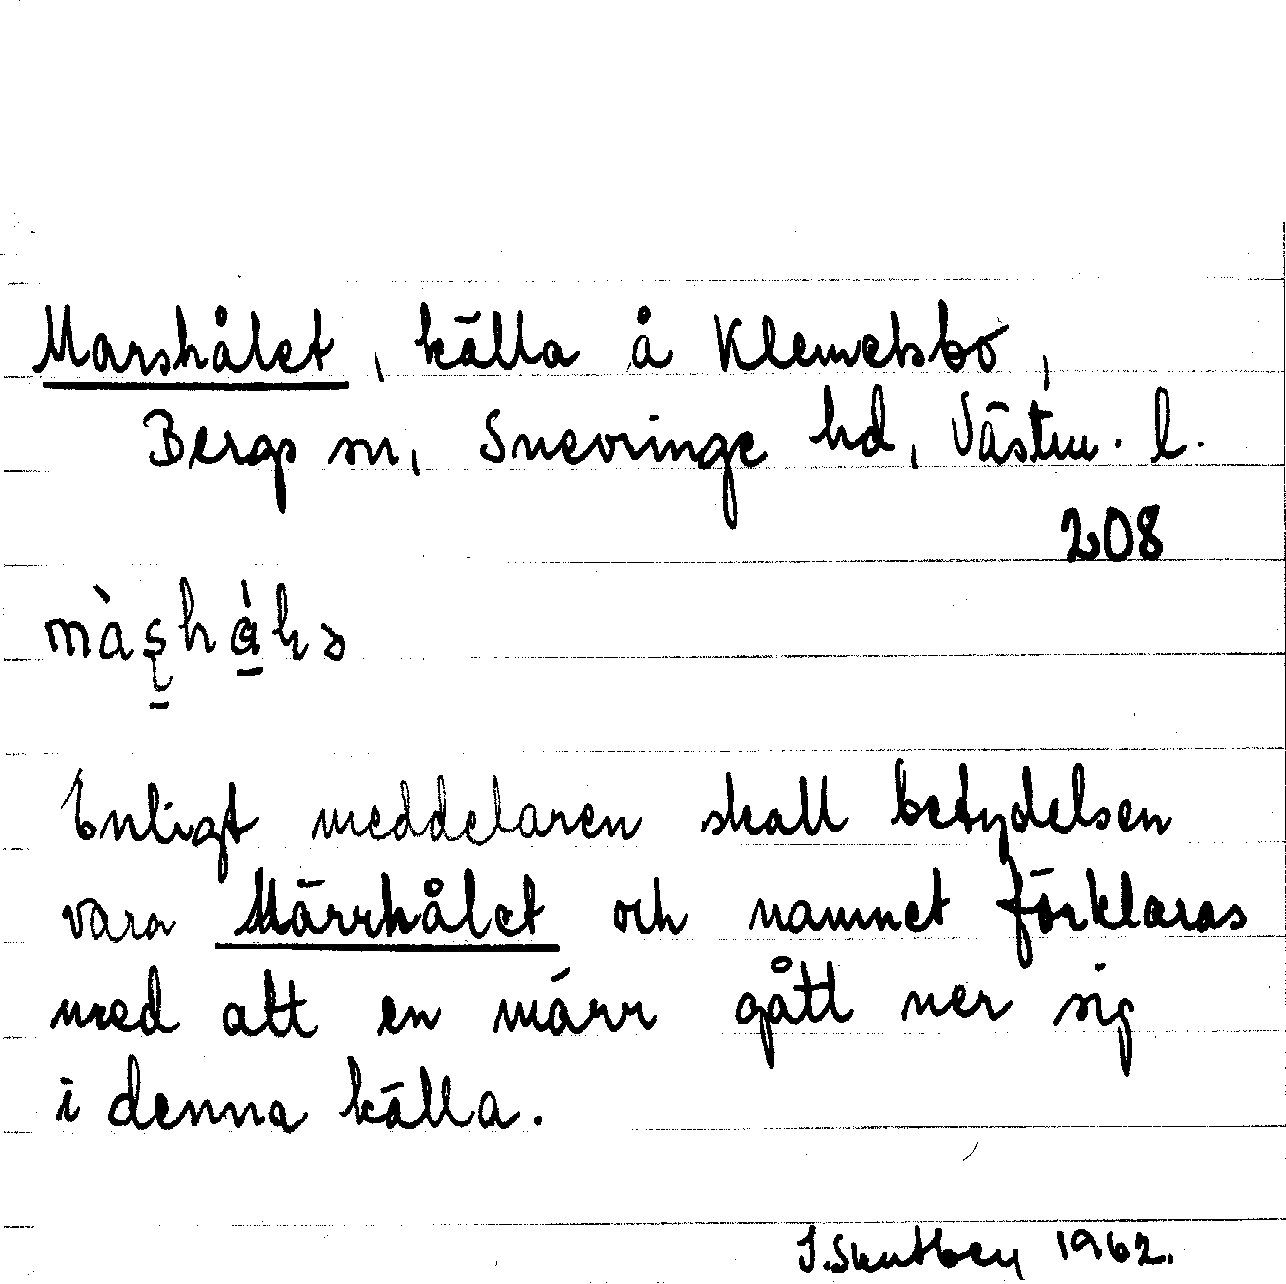 Marshålet, källa å Klemetsbo,
Bergs sn, Snevringe hd, Västm. l.
208
Enligt meddelaren skall betydelsen
vara Märrhålet och namnet förklaras
med att en märr gått ner sig
i denna källa.
1962.